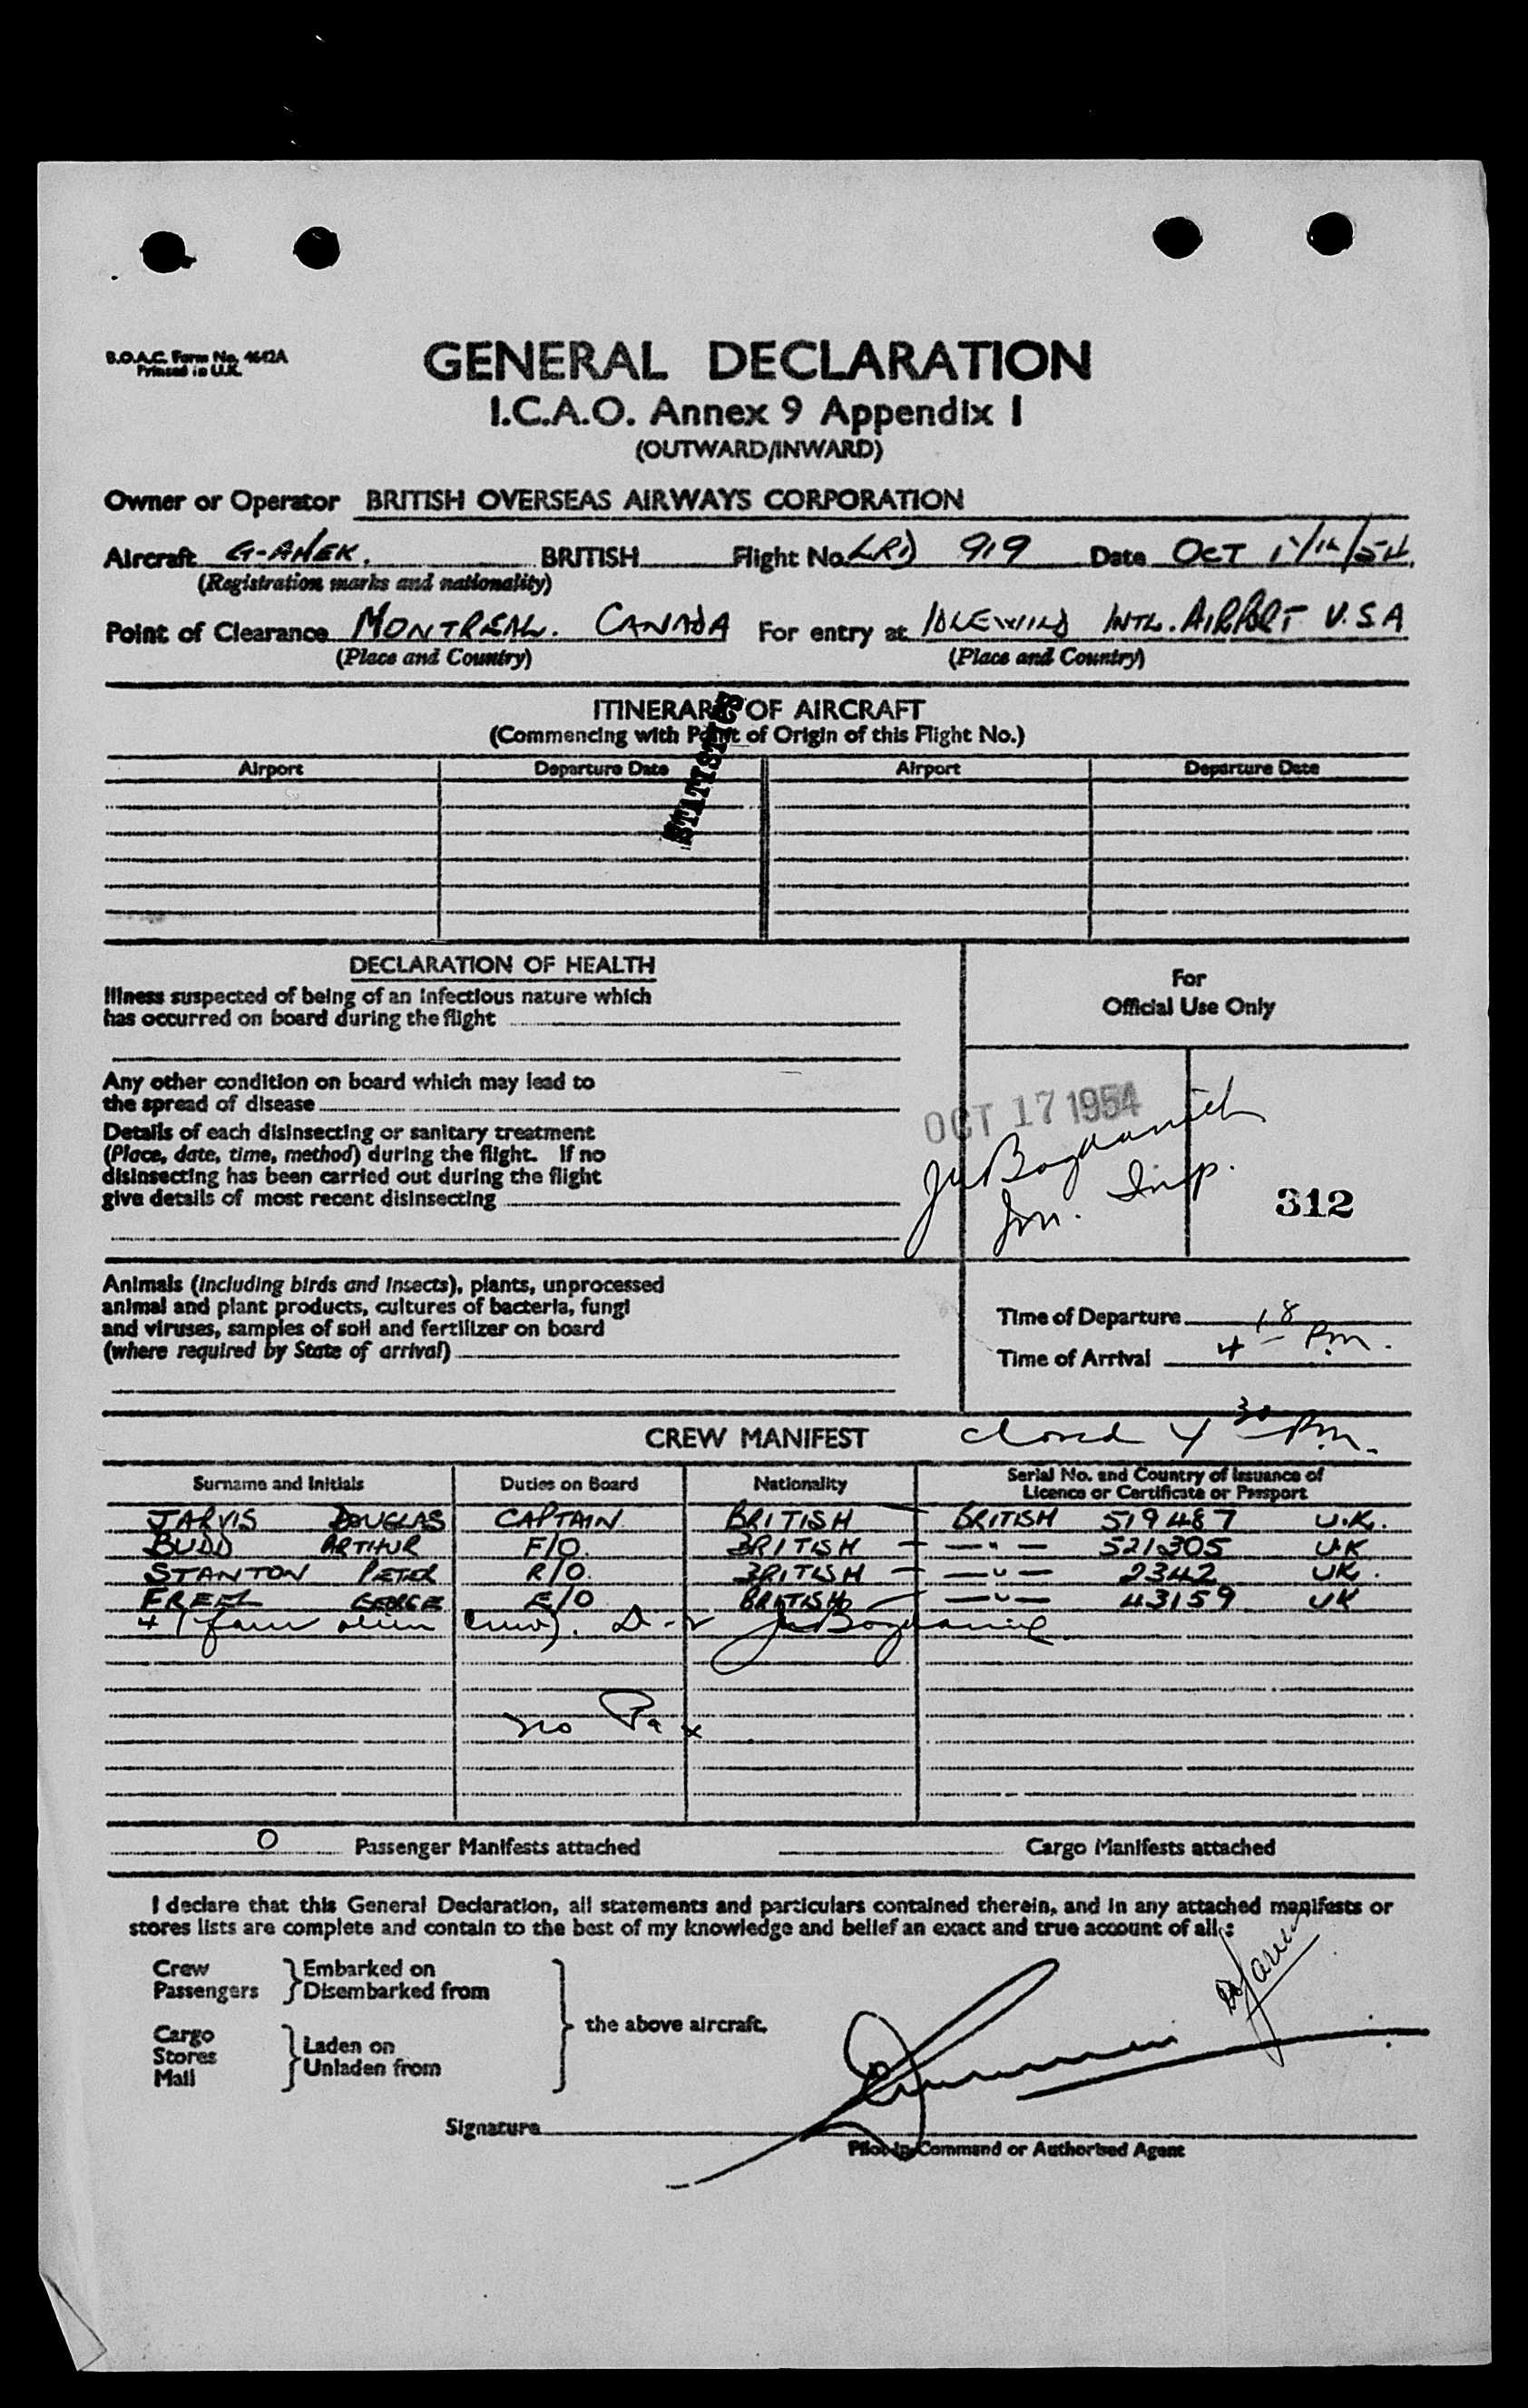 B.O.A.C. Form No. 4642A
Printed in U.K.
GENERAL DECLARATION
I.C.A.O. Annex 9 Appendix I
(OUTWARD/INWARD)
Owner or Operator BRITISH OVERSEAS AIRWAYS CORPORATION
Aircraft G-AHEK. BRITISH Flight No. 919 Date OCT
(Registration marks and nationality)
Point of Clearance MONTREAL. CANADA For entry at IDLEWILD INTL. AIRPORT U.S.A
(Place and Country) (Place and Country)
ITINERARY OF AIRCRAFT
(Commencing with Point of Origin of this Flight No.)
STATISTICS
Airport Departure Date Airport Departure Date
DECLARATION OF HEALTH
Illness suspected of being of an infectious nature which
has occurred on board during the flight
Any other condition on board which may lead to
the spread of disease
Details of each disinsecting or sanitary treatment
(Place, date, time, method) during the flight. If no
disinsecting has been carried out during the flight
give details of most recent disinsecting
For
Official Use Only
OCT 17 1954
Imm. Insp.
312
Animals (including birds and insects), plants, unprocessed
animal and plant products, cultures of bacteria, fungi
and viruses, samples of soil and fertilizer on board
(where required by State of arrival)
Time of Departure
Time of Arrival 4 - P.m.
closed 4 30 P.m.
CREW MANIFEST
Surname and Initials Duties on Board Nationality Serial No. and Country of Issuance of
Licence or Certificate or Passport
JARVIS DOUGLAS CAPTAIN BRITISH BRITISH 519487 U.K.
BUDD ARTHUR F/O. BRITISH — " — 521305 U.K
STANTON PETER R/O. BRITISH — " — 2342 UK.
GEORGE E/O BRITISH — " — 43159 UK
4 (four alien crew).
no Pax
0 Passenger Manifests attached Cargo Manifests attached
I declare that this General Declaration, all statements and particulars contained therein, and in any attached manifests or
stores lists are complete and contain to the best of my knowledge and belief an exact and true account of all:
Crew
Passengers
Embarked on
Disembarked from
Cargo
Stores
Mail
Laden on
Unladen from
the above aircraft.
Signature
Pilot-in-Command or Authorised Agent